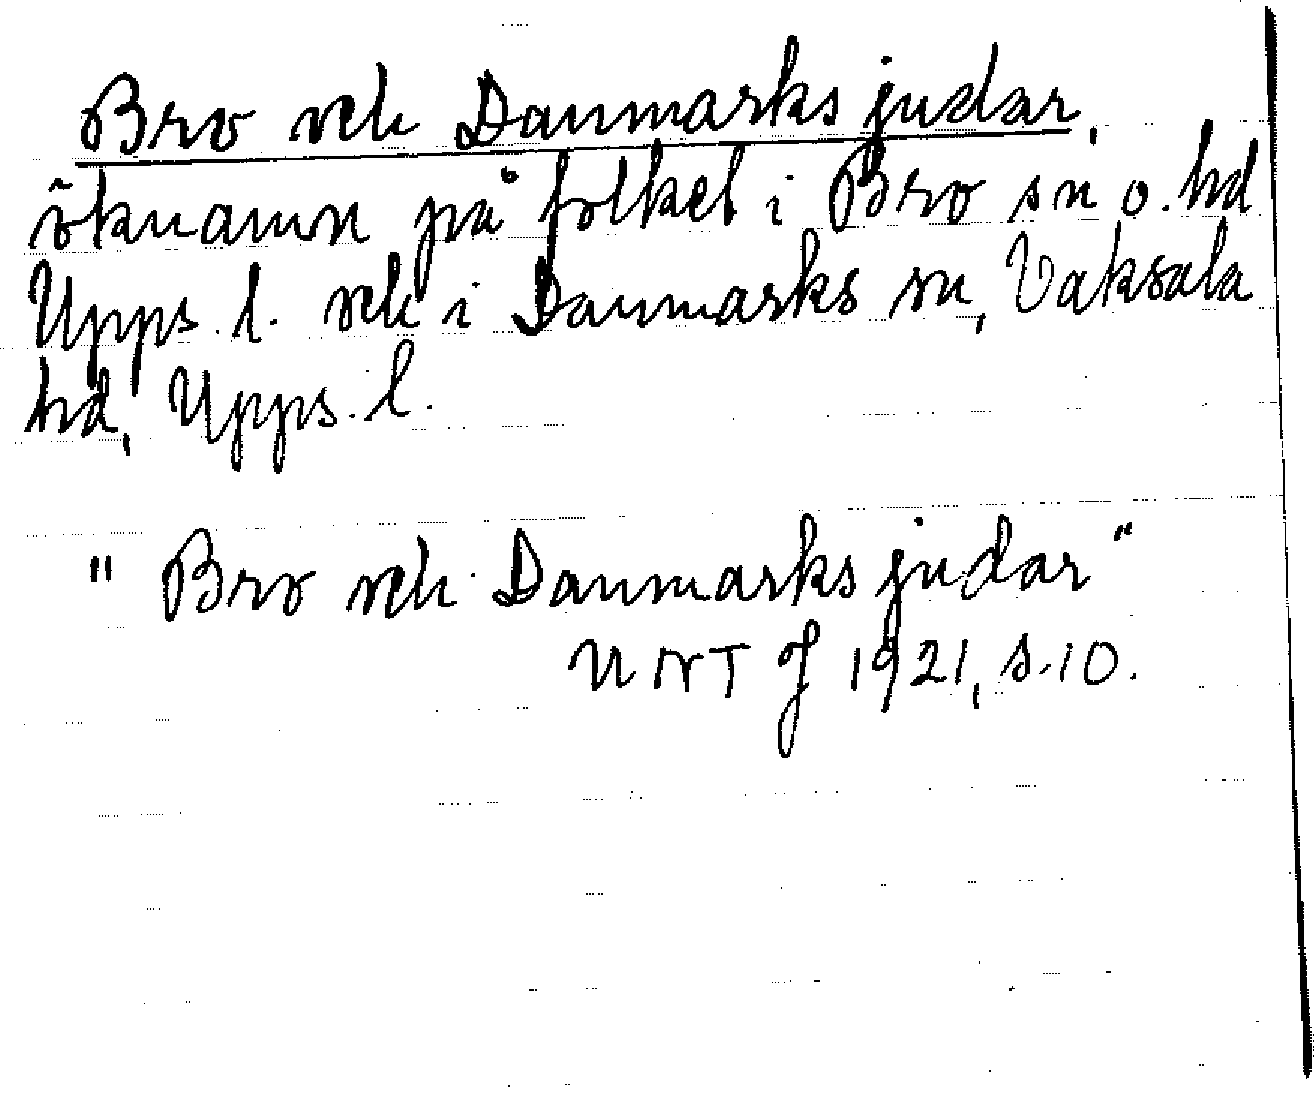 Bro och Danmarks judar,
öknamn på folket i Bro sn o. hd
Upps. l. och i Danmarks sn, Vaksala
hd, Upps. l.
" Bro och Danmarks judar "
UNT j 1921, s. 10.